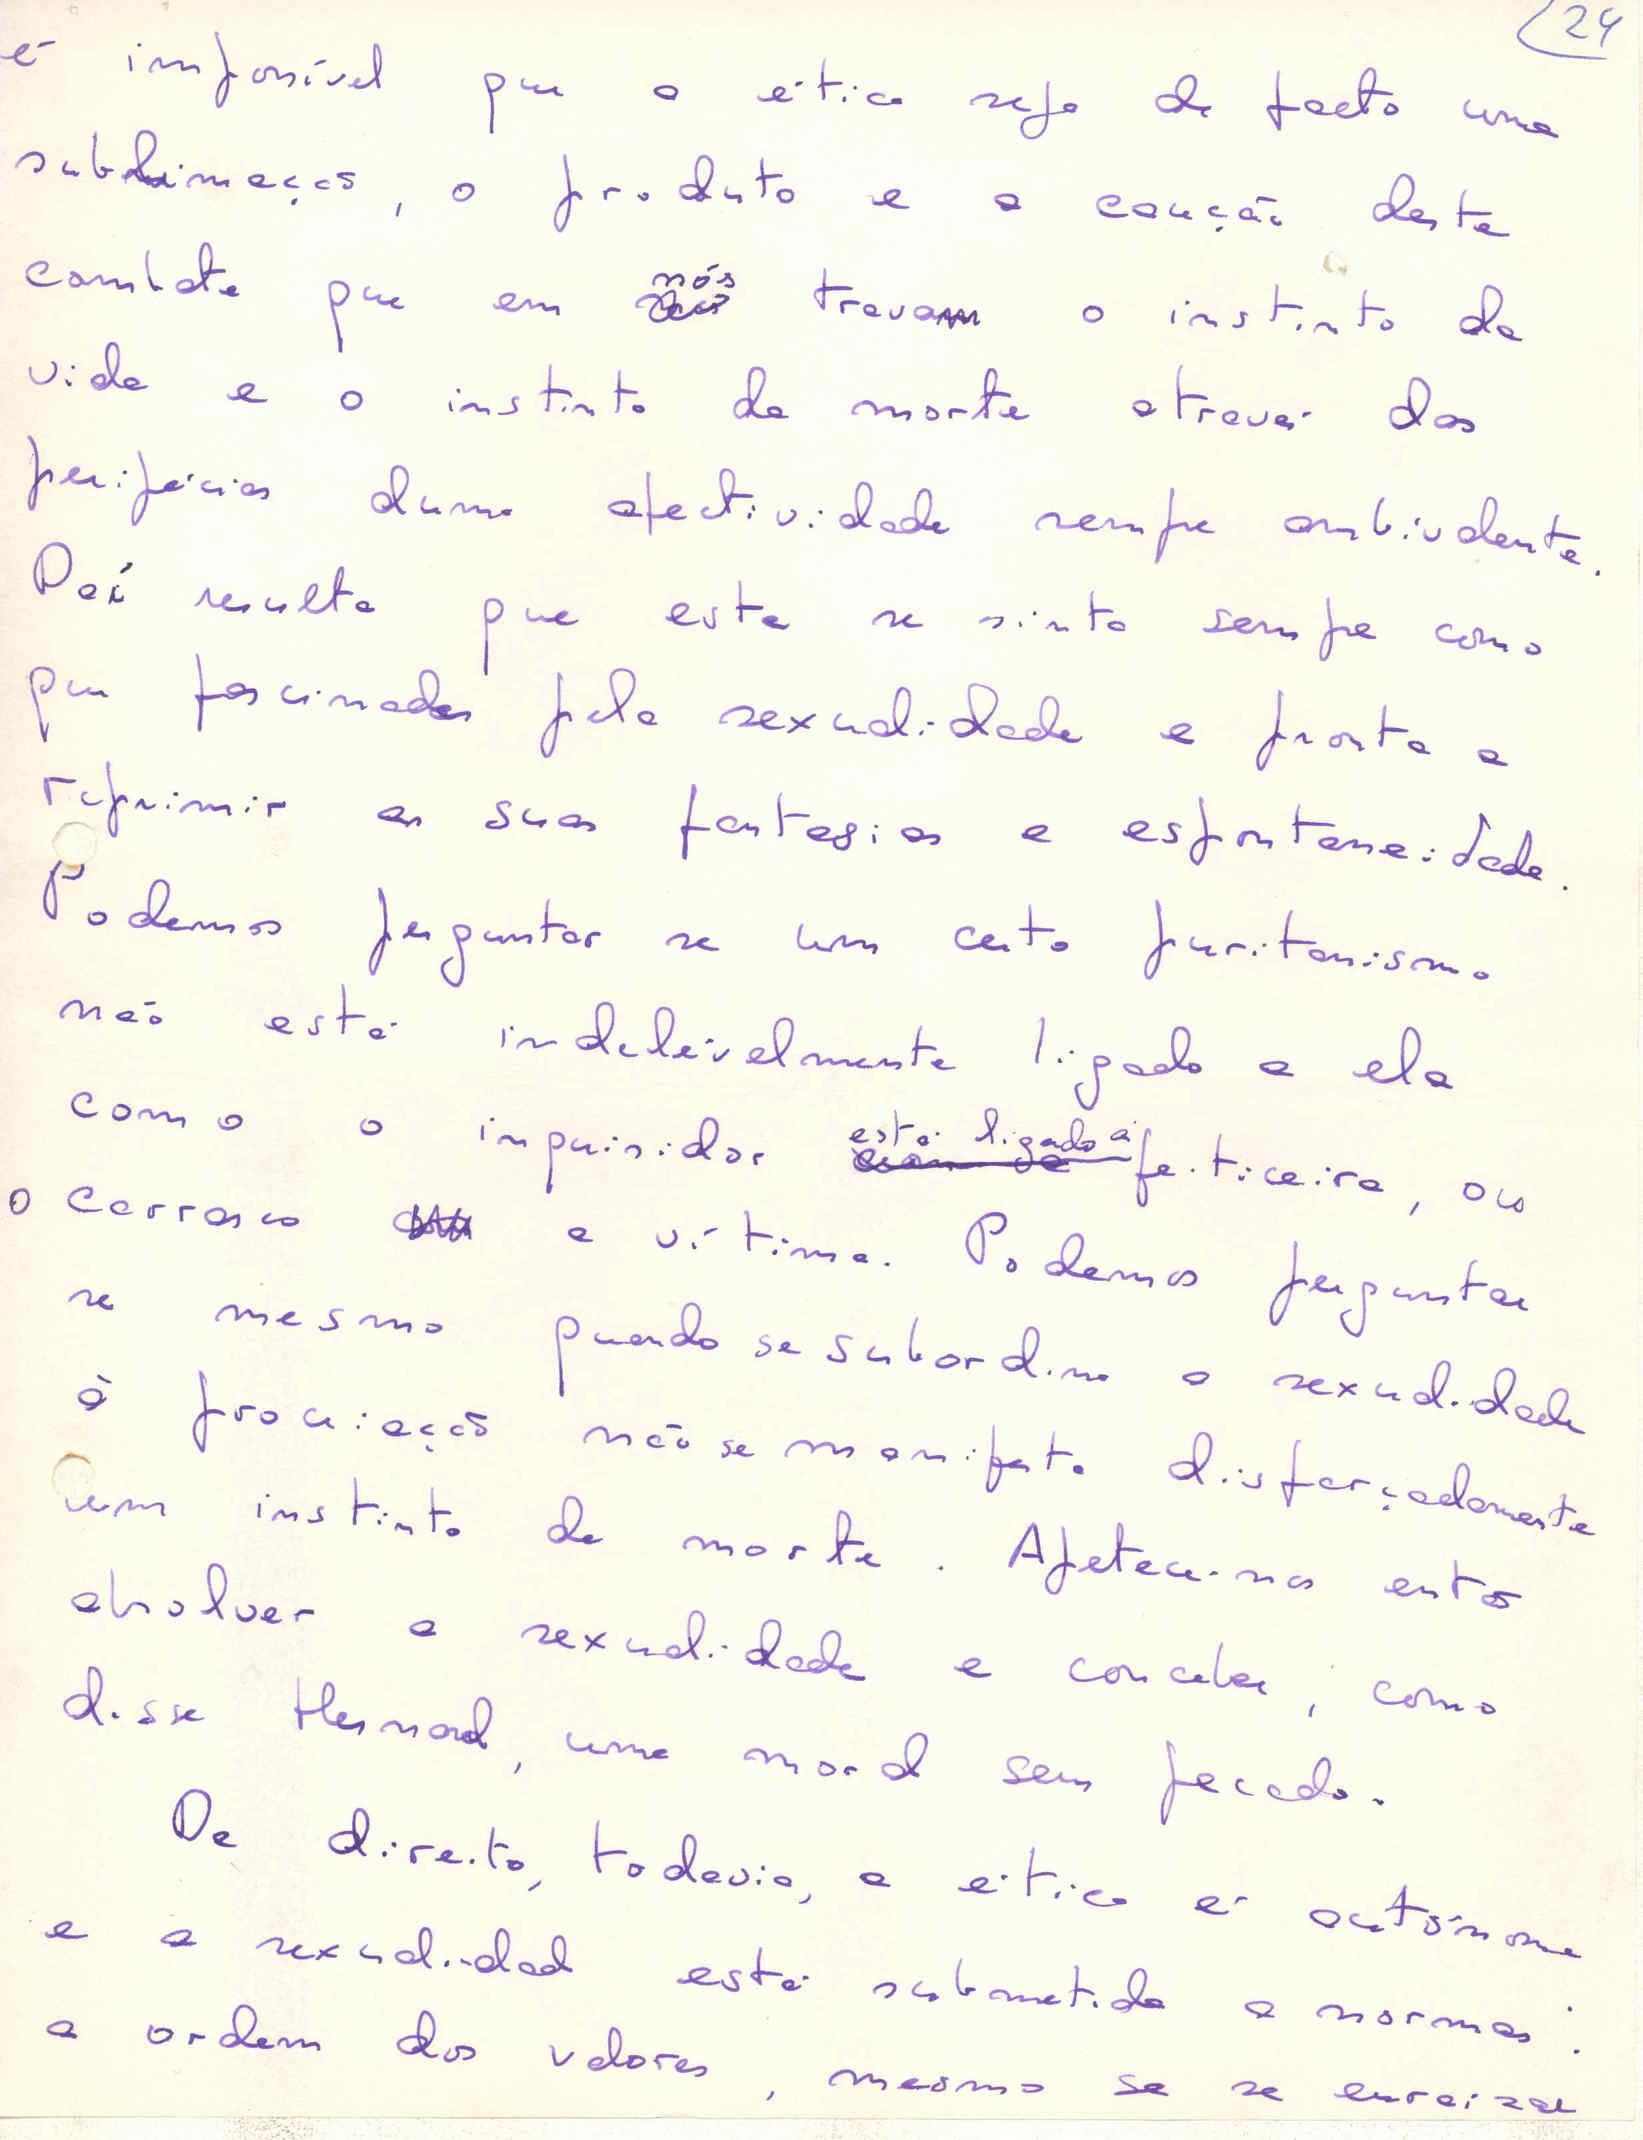 24
é impossível que a ética seja de facto uma
sublimação, o produto e a caução deste
combate que em nós travam o instinto de
vida e o instinto de morte através das
peripécias duma afectividade sempre ambivalente.
Daí resulta que esta se sinta sempre como
que fascinada pela sexualidade e pronta a
reprimir as suas fantasias e espontaneidade.
Podemos perguntar se um certo puritanismo
não está indelèvelmente ligado a ela
como o inquisidor está ligado à feiticeira, ou
o carrasco a vítima. Podemos perguntar
se mesmo quando se subordina a sexualidade
à procriação não se manifesta disfarçadamente
um instinto de morte. Apetece-nos então
absolver a sexualidade e conceber, como
disse Hesnard, uma moral sem pecado.
De direito, todavia, a ética é autónoma
e a sexualidad está submetida a normas:
a ordem dos valores, mesmo se se enraizar